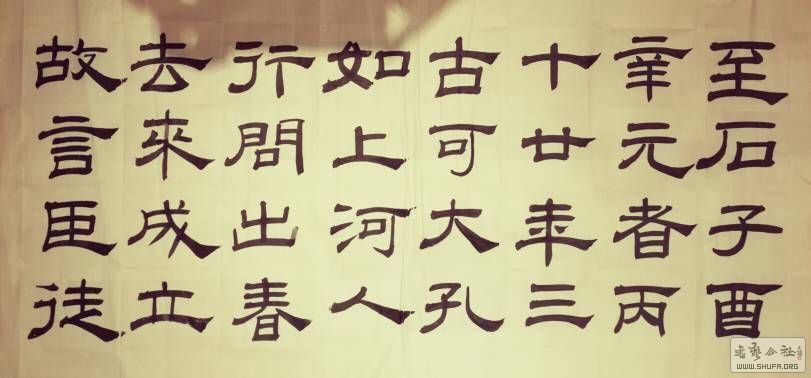 至石子酉
辛元者丙
十廿年三
古可大孔
如上河人
行問出春
去來成立
故言臣徒
書藝公社
WWW.SHUFA.ORG